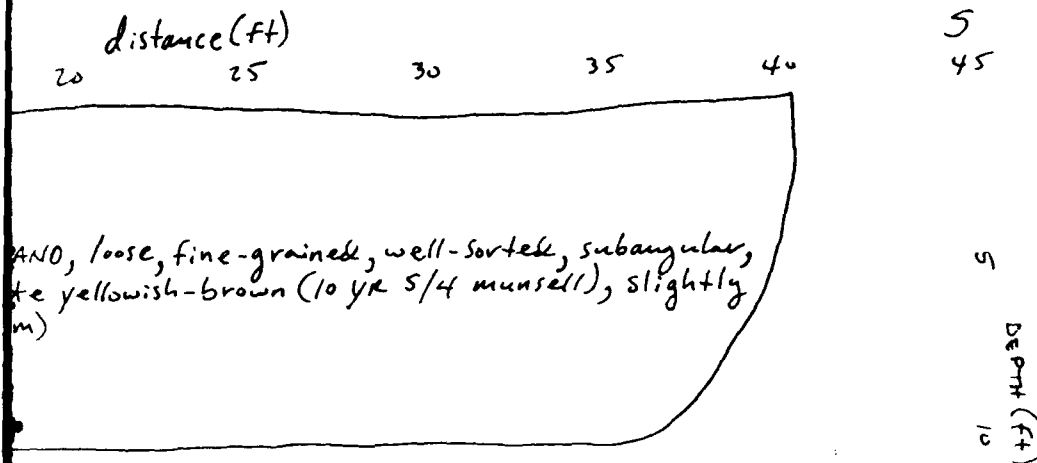 distance (ft)
S
20 25 30 35 40 45
AND, loose, fine-grained, well-sorted, subangular,
te yellowish-brown (10 YR 5/4 munsell), slightly
m)
5
DEPTH (ft)
10